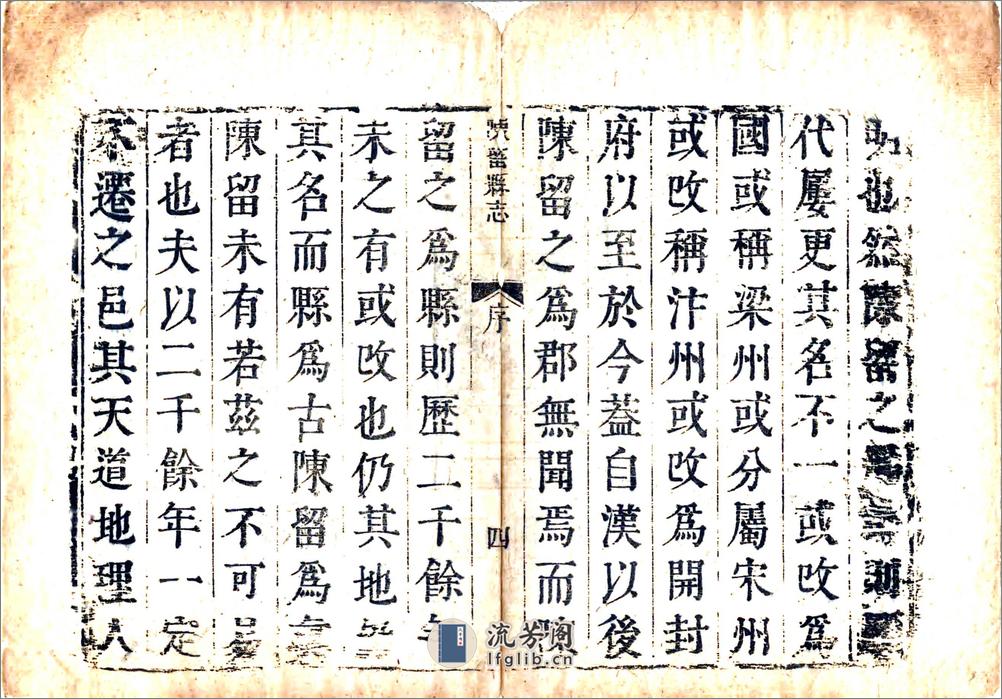 也然陳留之爲則
代屢更其名不一或改爲
國或稱梁州或分屬宋州
或改稱汴州或改爲開封
府以至於今葢自漢以後
陳留之爲郡無聞焉而
留縣志
序
四
留之爲縣則歷二千餘
未之有或改也仍其地
其名而縣爲古陳留爲
陳留未有若茲之不可易
者也夫以二千餘年一定
不遷之邑其天道地理人
流芳阁
lfglib.cn